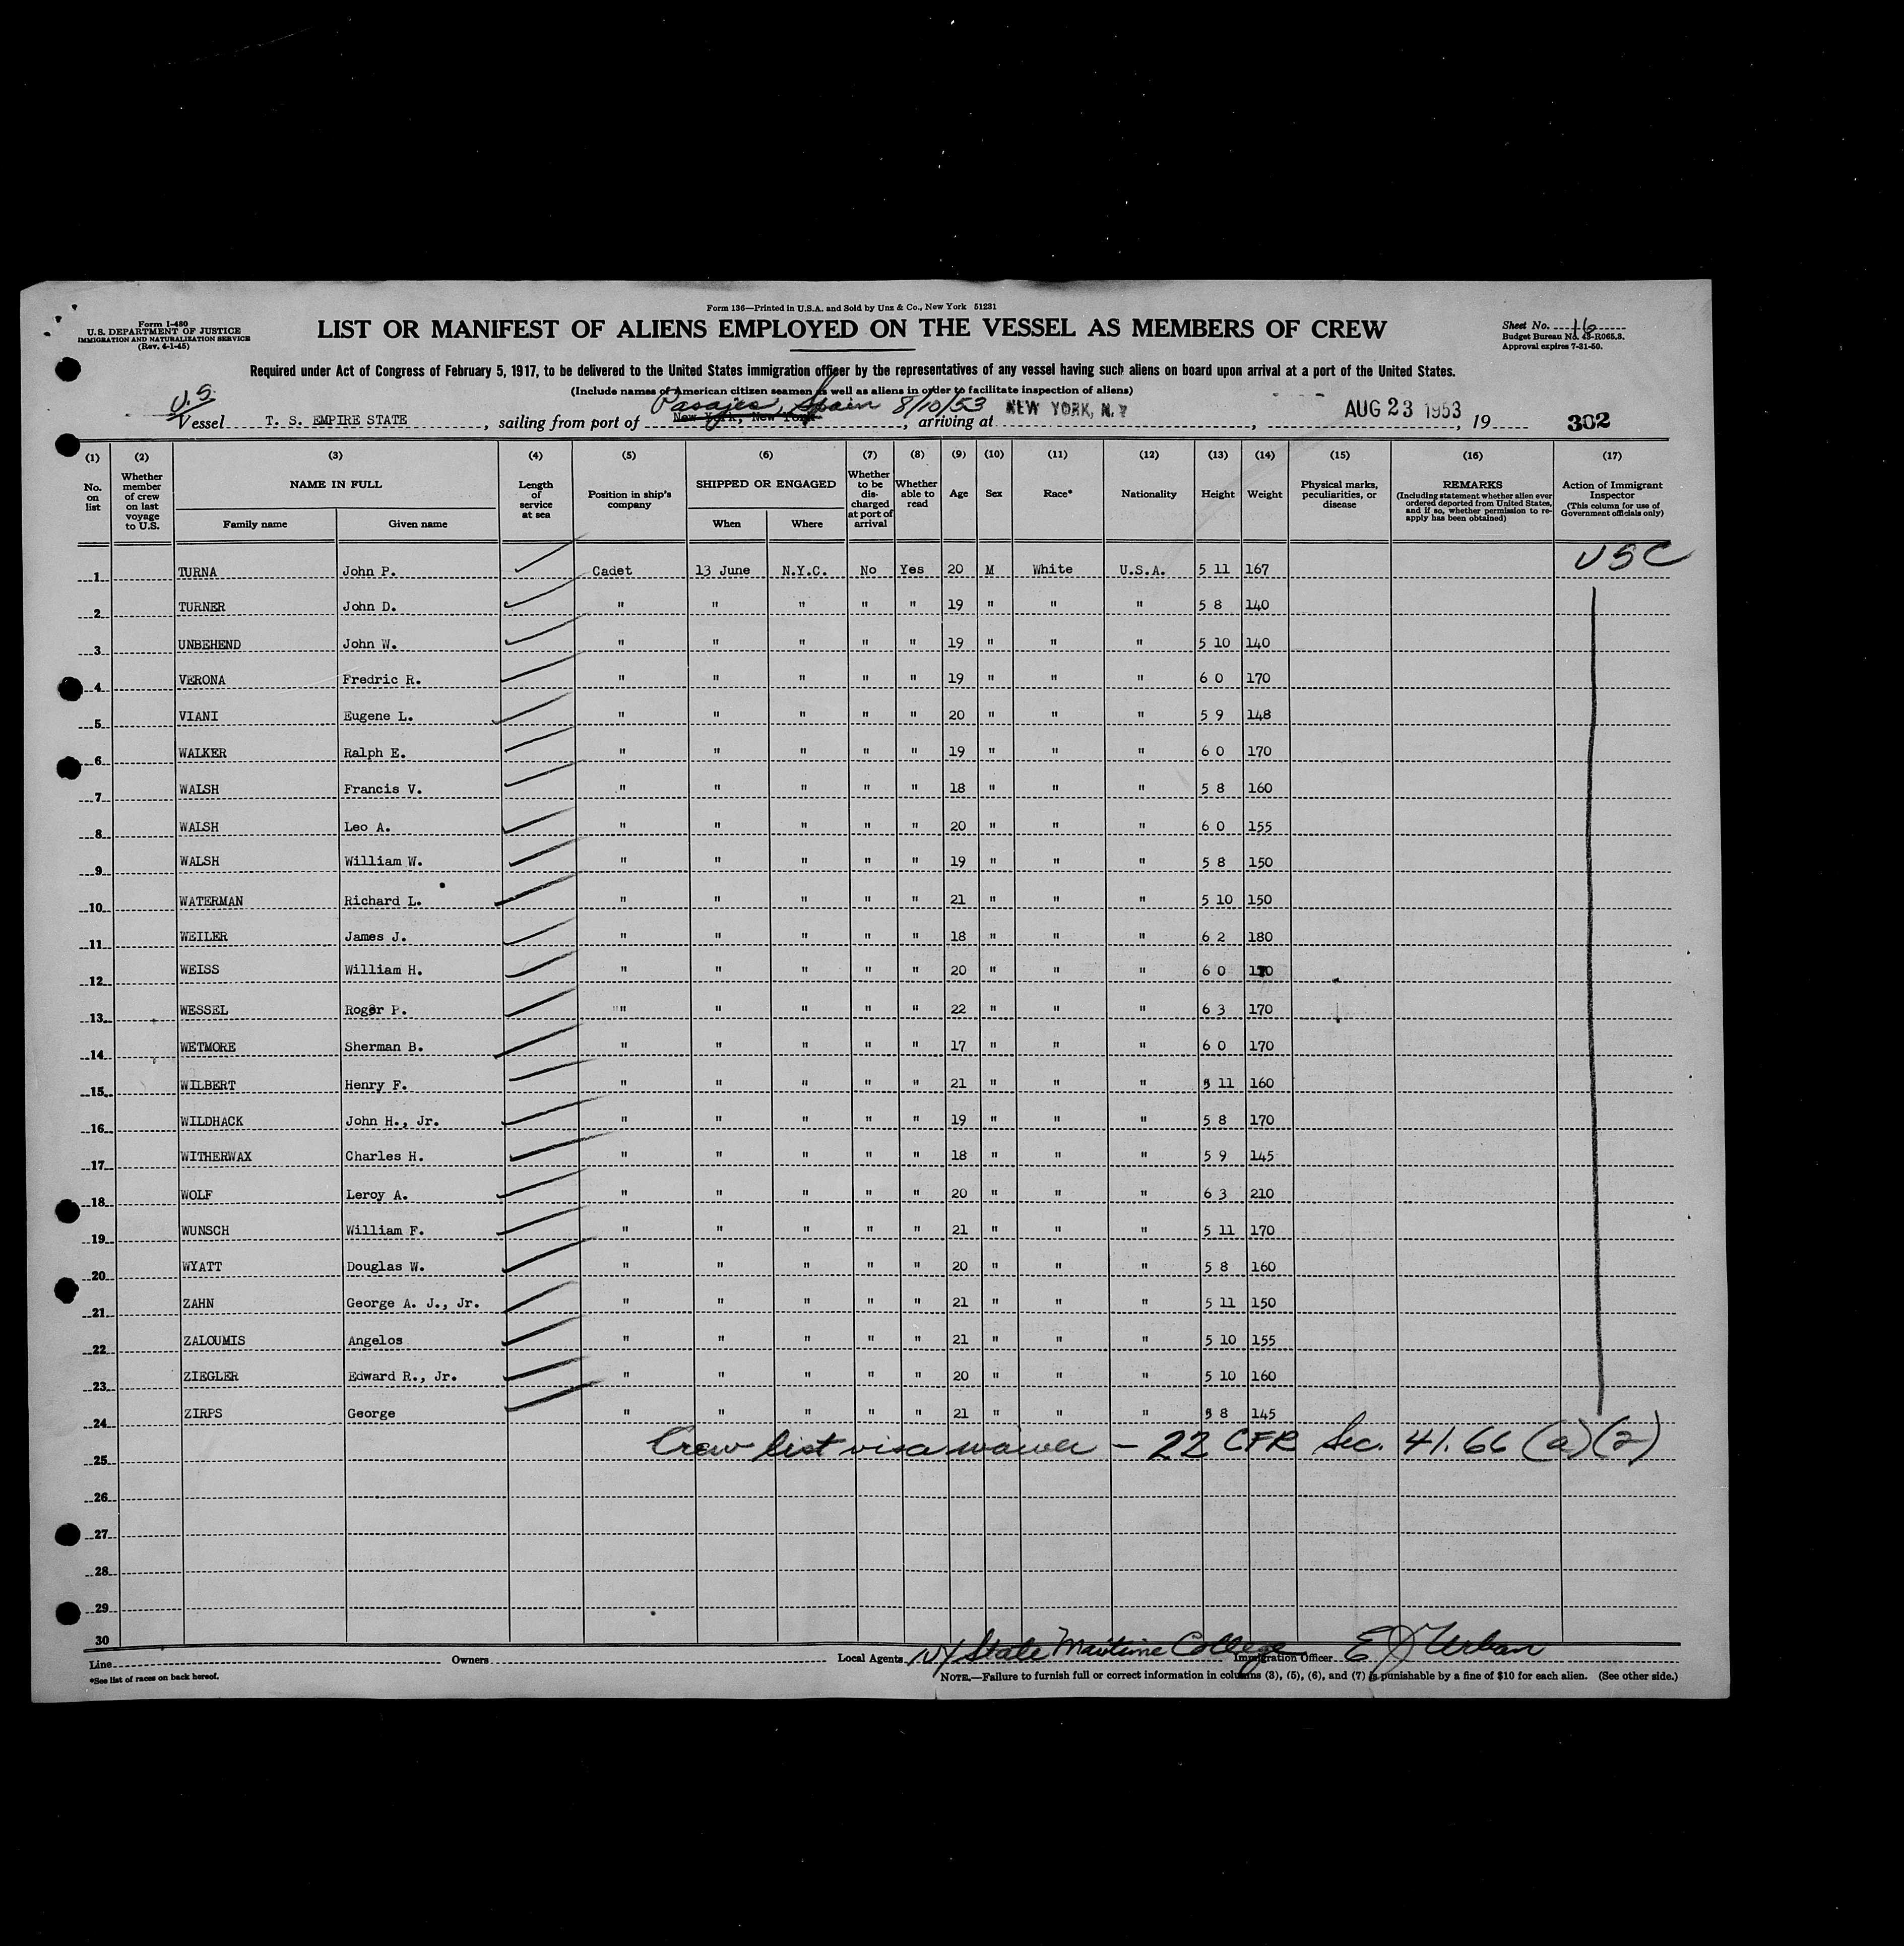 Form 136—Printed in U.S.A. and Sold by Unz & Co., New York 51231
Form I-480
U.S. DEPARTMENT OF JUSTICE
IMMIGRATION AND NATURALIZATION SERVICE
(Rev. 4-1-45)
LIST OR MANIFEST OF ALIENS EMPLOYED ON THE VESSEL AS MEMBERS OF CREW
Sheet No. 16
Budget Bureau No. 43-R065.3.
Approval expires 7-31-50.
Required under Act of Congress of February 5, 1917, to be delivered to the United States immigration officer by the representatives of any vessel having such aliens on board upon arrival at a port of the United States.
(Include names of American citizen seamen as well as aliens in order to facilitate inspection of aliens)
U.S. Pasajes, Spain 8/10/53
Vessel T. S. EMPIRE STATE, sailing from port of New York, New York, arriving at NEW YORK, N.Y, AUG 23 1953, 19 302
(1) (2) (3) (4) (5) (6) (7) (8) (9) (10) (11) (12) (13) (14) (15) (16) (17)
No. on list Whether member of crew on last voyage to U.S. NAME IN FULL Family name Given name Length of service at sea Position in ship's company SHIPPED OR ENGAGED When Where Whether to be discharged at port of arrival Whether able to read Age Sex Race* Nationality Height Weight Physical marks, peculiarities, or disease REMARKS (Including statement whether alien ever ordered deported from United States, and if so, whether permission to re-apply has been obtained) Action of Immigrant Inspector (This column for use of Government officials only)
1 TURNA John P. Cadet 13 June N.Y.C. No Yes 20 M White U.S.A. 5 11 167 USC
2 TURNER John D. " " " " " 19 " " " 5 8 140
3 UNBEHEND John W. " " " " " 19 " " " 5 10 140
4 VERONA Fredric R. " " " " " 19 " " " 6 0 170
5 VIANI Eugene L. " " " " " 20 " " " 5 9 148
6 WALKER Ralph E. " " " " " 19 " " " 6 0 170
7 WALSH Francis V. " " " " " 18 " " " 5 8 160
8 WALSH Leo A. " " " " " 20 " " " 6 0 155
9 WALSH William W. " " " " " 19 " " " 5 8 150
10 WATERMAN Richard L. " " " " " 21 " " " 5 10 150
11 WEILER James J. " " " " " 18 " " " 6 2 180
12 WEISS William H. " " " " " 20 " " " 6 0 170
13 WESSEL Roger P. " " " " " 22 " " " 6 3 170
14 WETMORE Sherman B. " " " " " 17 " " " 6 0 170
15 WILBERT Henry F. " " " " " 21 " " " 5 11 160
16 WILDHACK John H., Jr. " " " " " 19 " " " 5 8 170
17 WITHERWAX Charles H. " " " " " 18 " " " 5 9 145
18 WOLF Leroy A. " " " " " 20 " " " 6 3 210
19 WUNSCH William F. " " " " " 21 " " " 5 11 170
20 WYATT Douglas W. " " " " " 20 " " " 5 8 160
21 ZAHN George A. J., Jr. " " " " " 21 " " " 5 11 150
22 ZALOUMIS Angelos " " " " " 21 " " " 5 10 155
23 ZIEGLER Edward R., Jr. " " " " " 20 " " " 5 10 160
24 ZIRPS George " " " " " 21 " " " 5 8 145
25 Crew list visa waiver - 22 CFR Sec. 41.66 (a)(2)
26
27
28
29
30
Line Owners Local Agents NY State Maritime College Immigration Officer E J Urban
*See list of races on back hereof.
NOTE.—Failure to furnish full or correct information in columns (3), (5), (6), and (7) is punishable by a fine of $10 for each alien. (See other side.)